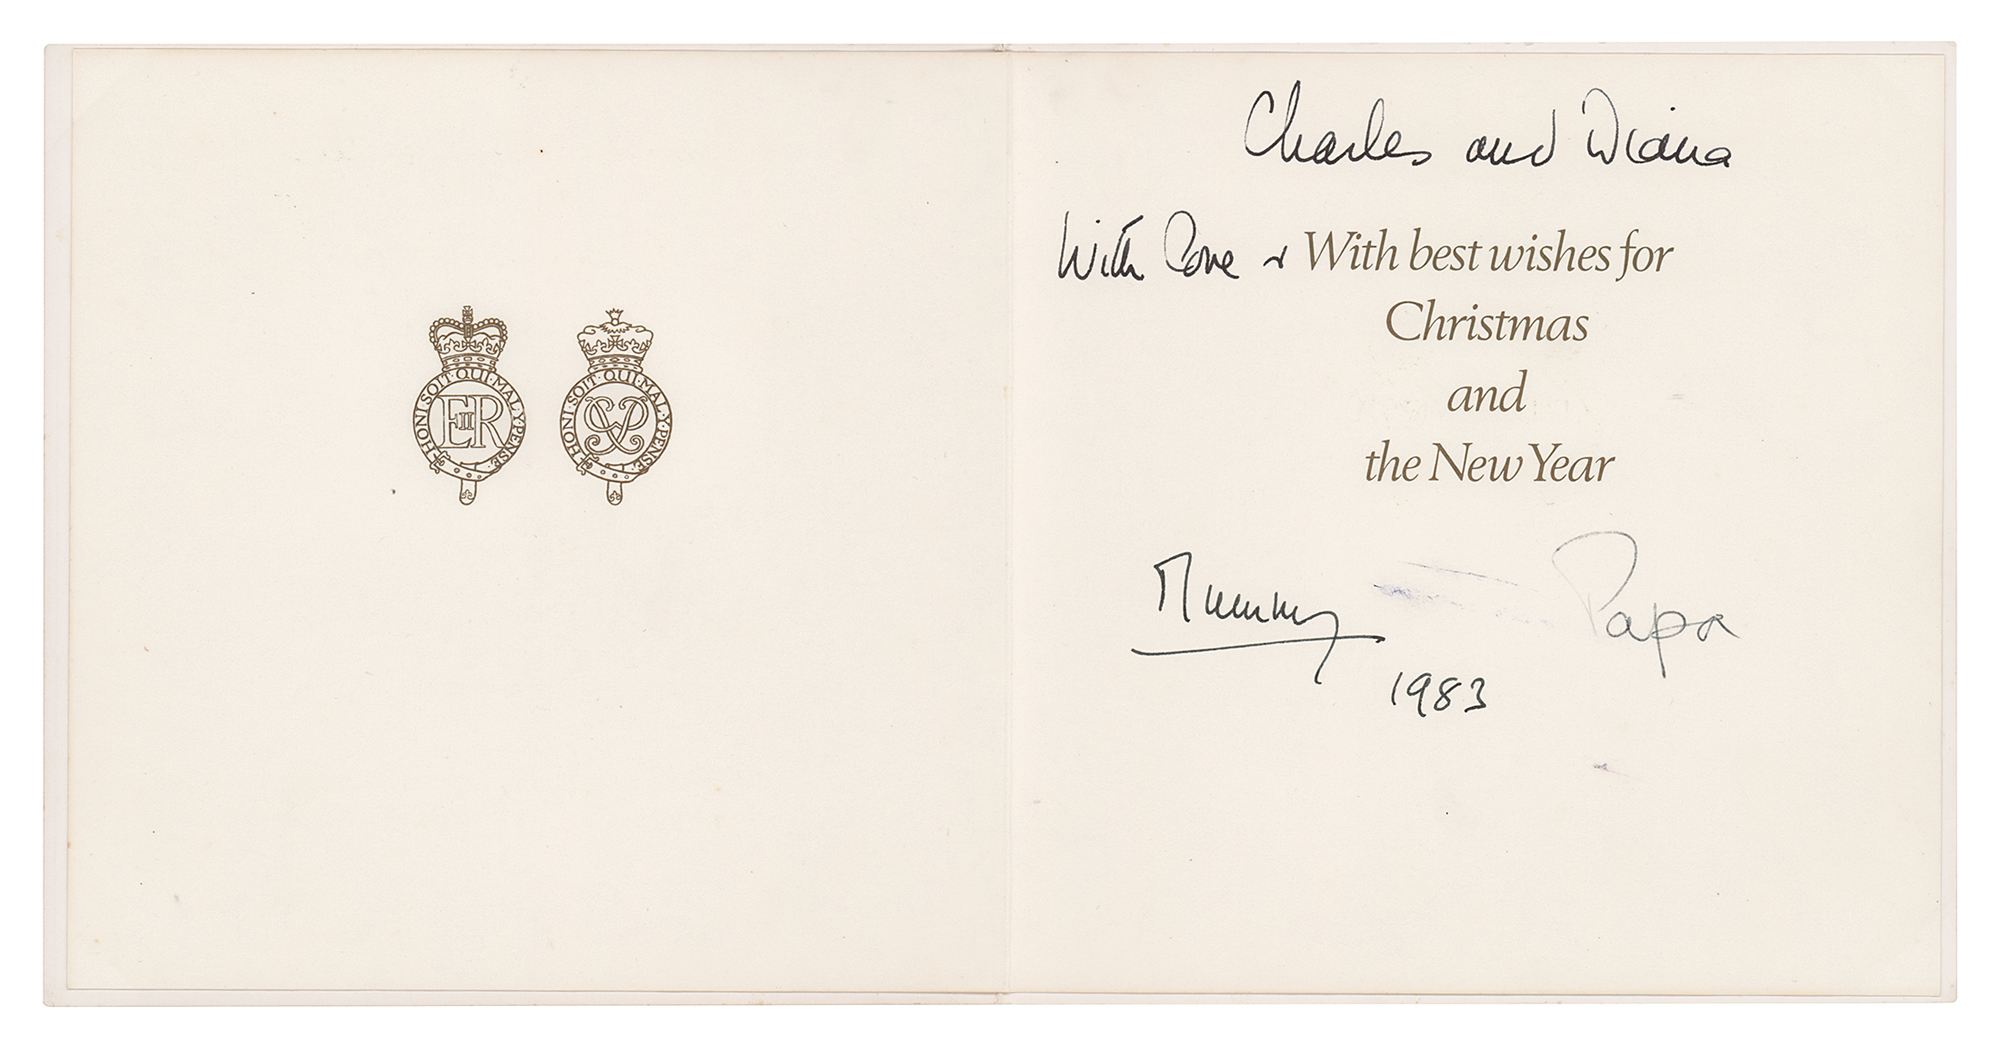 HONI·SOIT·QUI·MAL·Y·PENSE
EIIR
HONI·SOIT·QUI·MAL·Y·PENSE
Charles and Diana
With Love + With best wishes for
Christmas
and
the New Year
Mummy Papa
1983